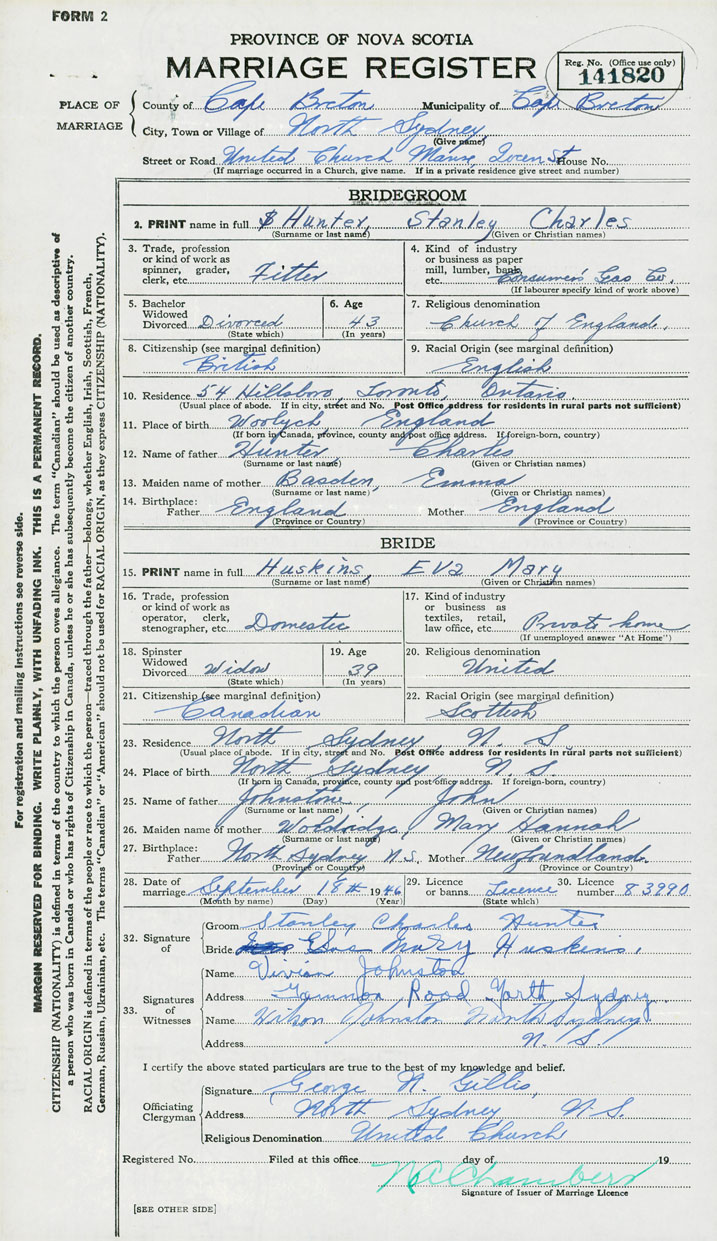 FORM 2
PROVINCE OF NOVA SCOTIA
MARRIAGE REGISTER
Reg. No. (Office use only)
141820
PLACE OF MARRIAGE
County of Cape Breton Municipality of Cape Breton
City, Town or Village of North Sydney
(Give name)
Street or Road United Church Manse, Queen St House No.
(If marriage occurred in a Church, give name. If in a private residence give street and number)
BRIDEGROOM
2. PRINT name in full Hunter, Stanley Charles
(Surname or last name) (Given or Christian names)
3. Trade, profession or kind of work as spinner, grader, clerk, etc. Fitter
4. Kind of industry or business as paper mill, lumber, bank, etc. Consumer's Gas Co.
(If labourer specify kind of work above)
5. Bachelor Widowed Divorced Divorced
(State which)
6. Age 43
(In years)
7. Religious denomination
Church of England.
8. Citizenship (see marginal definition)
British
9. Racial Origin (see marginal definition)
English
10. Residence 54 Hillsboro, Toronto, Ontario.
(Usual place of abode. If in city, street and No. Post Office address for residents in rural parts not sufficient)
11. Place of birth Woolych England
(If born in Canada, province, county and post office address. If foreign-born, country)
12. Name of father Hunter, Charles
(Surname or last name) (Given or Christian names)
13. Maiden name of mother Basden, Emma
(Surname or last name) (Given or Christian names)
14. Birthplace: Father England Mother England
(Province or Country) (Province or Country)
BRIDE
15. PRINT name in full Huskins, Eva Mary
(Surname or last name) (Given or Christian names)
16. Trade, profession or kind of work as operator, clerk, stenographer, etc. Domestic
17. Kind of industry or business as textiles, retail, law office, etc. Private home
(If unemployed answer "At Home")
18. Spinster Widowed Divorced Widow
(State which)
19. Age 39
(In years)
20. Religious denomination
United
21. Citizenship (see marginal definition)
Canadian
22. Racial Origin (see marginal definition)
Scottish
23. Residence North Sydney, N. S.
(Usual place of abode. If in city, street and No. Post Office address for residents in rural parts not sufficient)
24. Place of birth North Sydney N. S.
(If born in Canada, province, county and post office address. If foreign-born, country)
25. Name of father Johnstone, John
(Surname or last name) (Given or Christian names)
26. Maiden name of mother Woldridge, Mary Hannah
(Surname or last name) (Given or Christian names)
27. Birthplace: Father North Sydney N.S. Mother Newfoundland.
(Province or Country) (Province or Country)
28. Date of marriage September 19th 1946
(Month by name) (Day) (Year)
29. Licence or banns Licence
(State which)
30. Licence number 83990
32. Signature of
Groom Stanley Charles Hunter
Bride Eva Mary Huskins.
33. Signatures of Witnesses
Name Vivian Johnston
Address Gannon Road North Sydney
Name Wilson Johnston North Sydney
Address N. S.
I certify the above stated particulars are true to the best of my knowledge and belief.
Officiating Clergyman
Signature George N. Gillis,
Address North Sydney N.S.
Religious Denomination United Church
Registered No. Filed at this office day of 19
Chambers
Signature of Issuer of Marriage Licence
[SEE OTHER SIDE]
For registration and mailing instructions see reverse side.
MARGIN RESERVED FOR BINDING. WRITE PLAINLY, WITH UNFADING INK. THIS IS A PERMANENT RECORD.
CITIZENSHIP (NATIONALITY) is defined in terms of the country to which the person owes allegiance. The term "Canadian" should be used as descriptive of
a person who was born in Canada or who has rights of Citizenship in Canada, unless he or she has subsequently become the citizen of another country.
RACIAL ORIGIN is defined in terms of the people or race to which the person—traced through the father—belongs, whether English, Irish, Scottish, French,
German, Russian, Ukrainian, etc. The terms "Canadian" or "American" should not be used for RACIAL ORIGIN, as they express CITIZENSHIP (NATIONALITY).